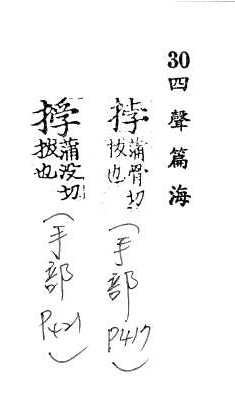 30四聲篇海
挬
蒲骨切
拔也
(手部 P417)
蒲没切
拔也
(手部 P421)